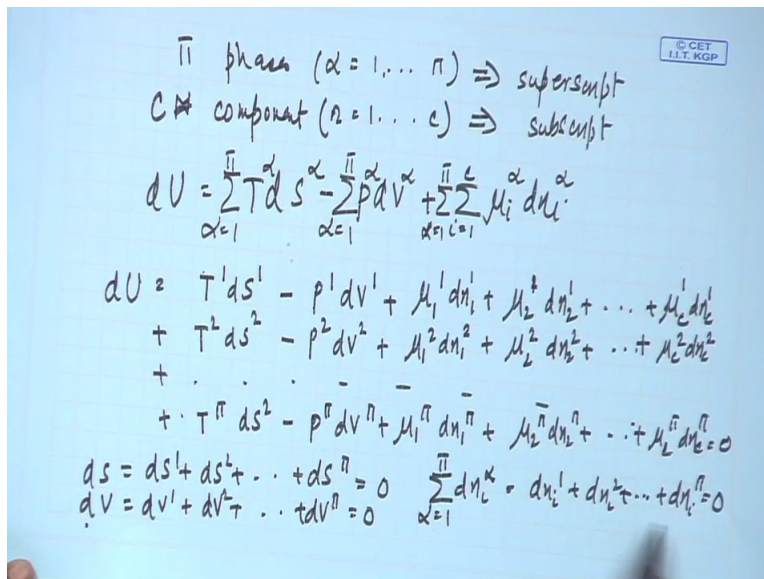 π phases (α = 1, ... π) ⇒ superscript
© CET
I.I.T. KGP
C component (n = 1 ... c) ⇒ subscript
dU = Σ_{α=1}^{π} T^α dS^α - Σ_{α=1}^{π} P^α dV^α + Σ_{α=1}^{π} Σ_{i=1}^{c} μ_i^α dn_i^α
dU = T^1 dS^1 - P^1 dV^1 + μ_1^1 dn_1^1 + μ_2^1 dn_2^1 + ... + μ_c^1 dn_c^1
+ T^2 dS^2 - P^2 dV^2 + μ_1^2 dn_1^2 + μ_2^2 dn_2^2 + ... + μ_c^2 dn_c^2
+ . . . - - -
+ T^π dS^2 - P^π dV^π + μ_1^π dn_1^π + μ_2^π dn_2^π + ... + μ_2^π dn_c^π = 0
dS = dS^1 + dS^2 + ... + dS^π = 0
dV = dV^1 + dV^2 + ... + dV^π = 0
Σ_{α=1}^{π} dn_i^α = dn_i^1 + dn_i^2 + ... + dn_i^π = 0